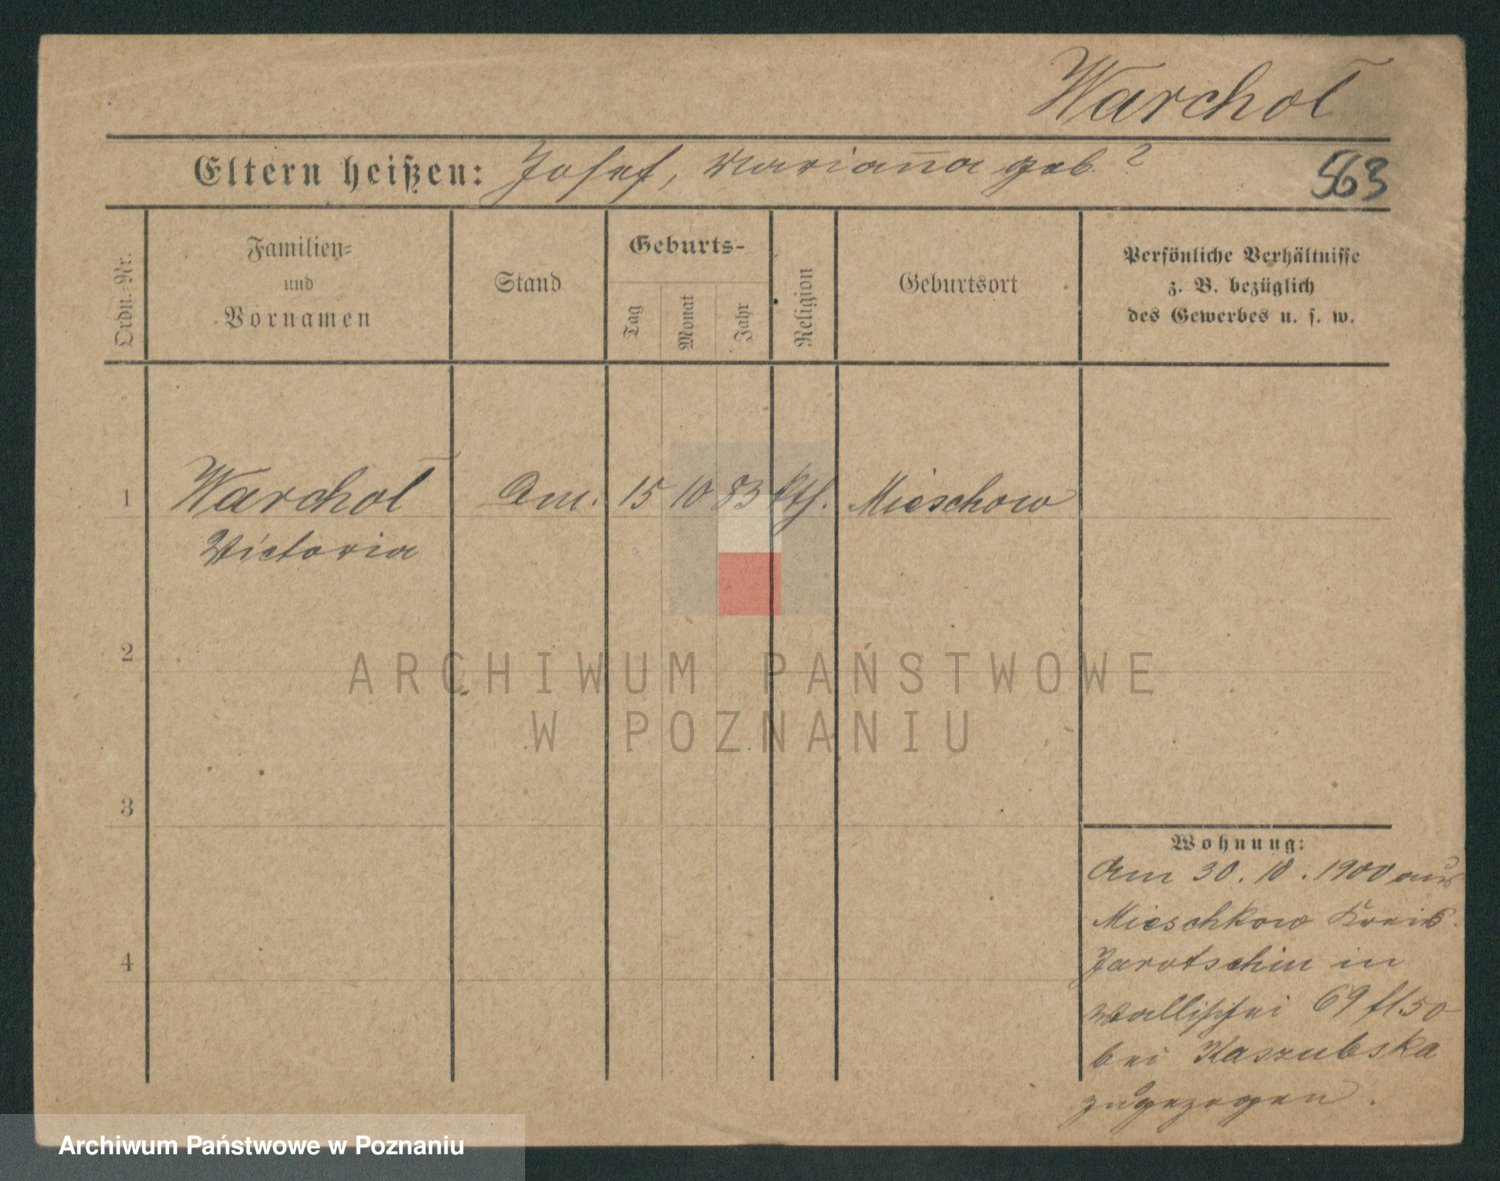 Warchoł
Eltern heißen: Josef, Marianna geb. ?
563
Ordn.-Nr.
Familien-
und
Vornamen
Stand
Geburts-
Tag
Monat
Jahr
Religion
Geburtsort
Persönliche Verhältnisse
z. B. bezüglich
des Gewerbes u. s. w.
1 Warchoł 15 10 83 kth. Mieschow
Victoria
2
3
4
Wohnung:
Am 30. 10. 1900 aus
Mieschkow Kreis
Jarotschin in
Wallischei 69
bei Kaszubska
zugezogen.
ARCHIWUM PAŃSTWOWE
W POZNANIU
Archiwum Państwowe w Poznaniu